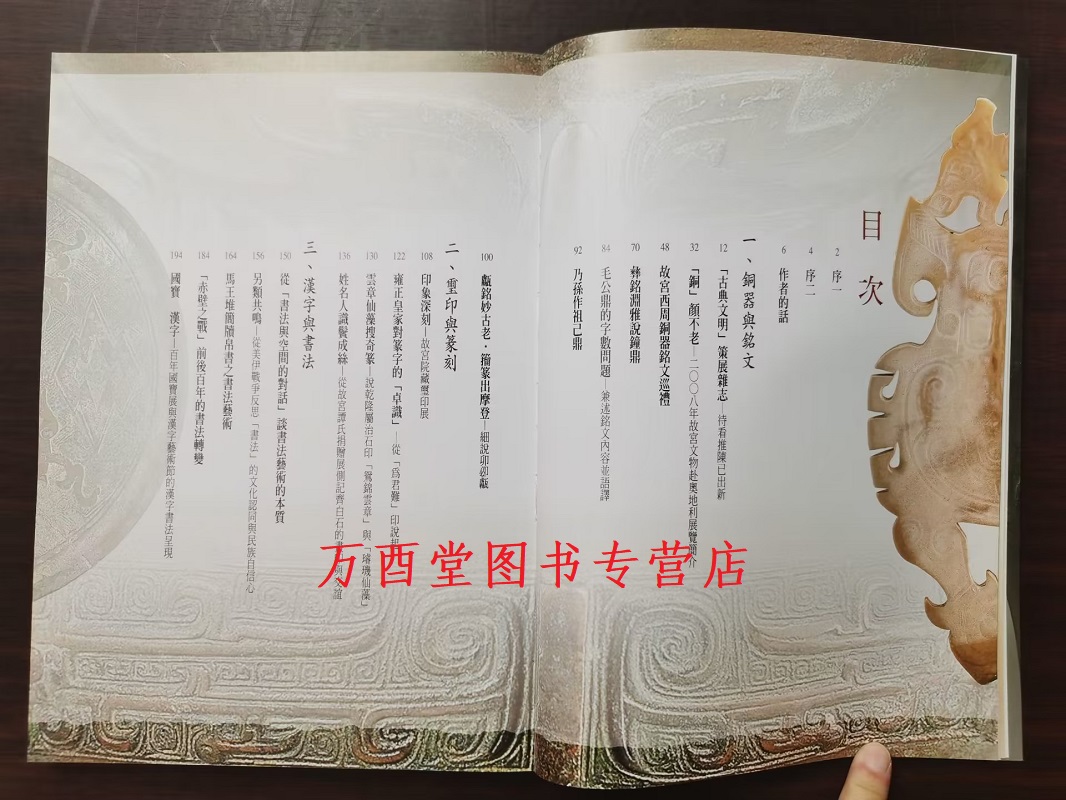 目次
2 序一
4 序二
6 作者的話
一、銅器與銘文
12 「古典文明」策展雜志—待看推陳已出新
32 「銅」顏不老—二〇〇八年故宮文物赴奧地利展覽簡介
48 故宮西周銅器銘文巡禮
70 彝銘淵雅說鐘鼎
84 毛公鼎的字數問題—兼述銘文內容並語譯
92 乃孫作祖己鼎
100 甗銘妙古老‧籀篆出摩登—細說卯邲甗
二、璽印與篆刻
108 印象深刻—故宮院藏璽印展
122 雍正皇家對篆字的「卓識」—從「為君難」印說起
130 雲章仙藻搜奇篆—說乾隆屬治石印「鴛錦雲章」與「璿璣仙藻」
136 姓名人識鬢成絲—從故宮譚氏捐贈展側記齊白石的書
與交誼
三、漢字與書法
150 從「書法與空間的對話」談書法藝術的本質
156 另類共鳴—從美伊戰爭反思「書法」的文化認同與民族自信心
164 馬王堆簡牘帛書之書法藝術
184 「赤壁之戰」前後百年的書法轉變
194 國寶 漢字—百年國寶展與漢字藝術節的漢字書法呈現
万酉堂图书专营店